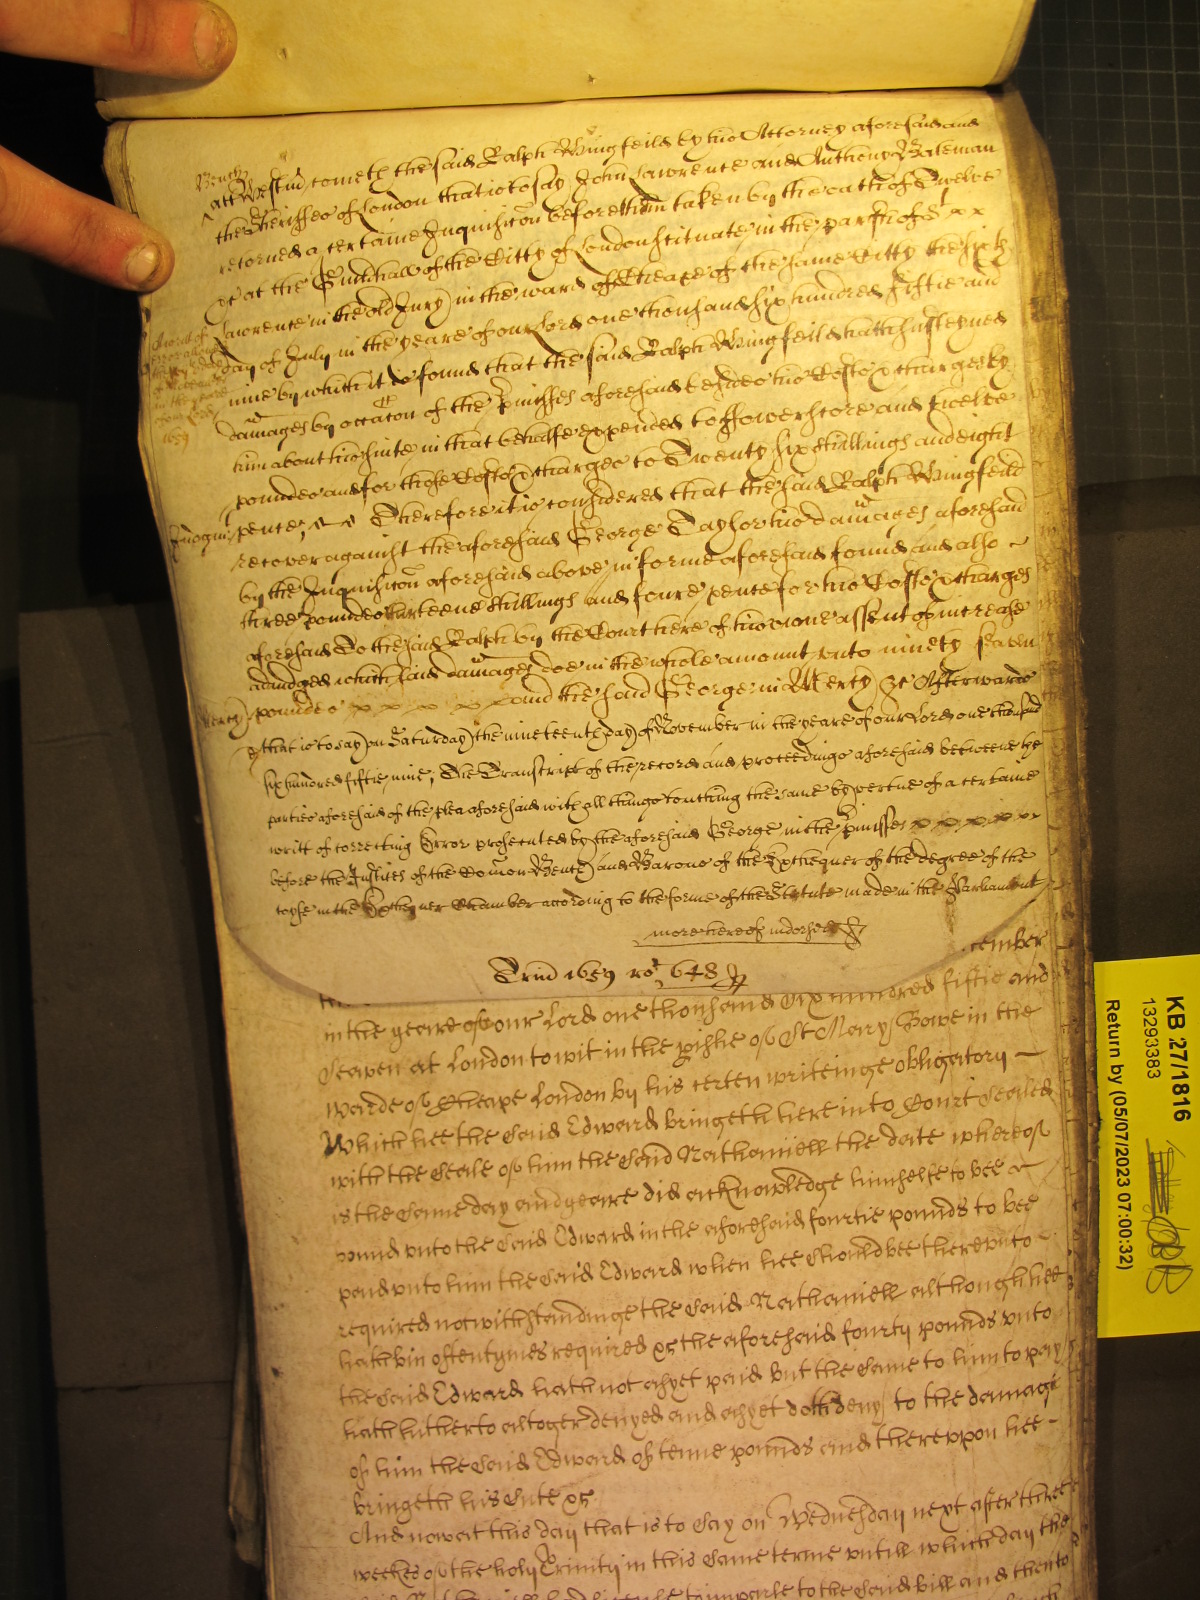 Bench
att Westm̃ cometh the said Ralph Wingfeild by his Attorney aforesaid and
the Sheriffes of London that is to say John Lawrence and Anthony Bateman
retorned a certaine Inquisicõn before them taken by the oath of Twelve
&c at the Guildhall of the Citty of London scituate in the parish of St x x
Lawrence in the old Jury in the ward of Cheape of the same Citty the sixth
day of July in the yeare of our Lord one thousand six hundred fiftie and
nine by which it is found that the said Ralph Wingfeild hath susteyned
damages by occac̃on of the p̱misses aforesaid besides his Costs & charges by
him about his suite in that behalfe expended to ffower score and twelve
pounds and for those Costs & charges to Twenty six shillings and eight
Judgm̃t pence; Therefore it is considered that the said Ralph Wingfeild
recover against the aforesaid George Taylor his damages aforesaid
by the Inquisicõn aforesaid above in forme aforesaid found and also
three pounds thirteene shillings and foure pence for his Costs & charges
aforesaid To the said Ralph by the Court here of his owne assent of increase
adiudged which said damages doe in the whole amount unto ninety seaven
Mercy pounds x x x x x and the said George in Mercy &c Afterwards
that is to say on Saturday the nineteenth day of November in the yeare of our Lord one thousand
six hundred fiftie nine, The Transcript of the record and proceedings aforesaid betweene the
parties aforesaid of the plea aforesaid with all things touching the same by vertue of a certaine
writt of correcting Error prosecuted by the aforesaid George in the p̱misses x x x x x x
before the Justices of the Com̃on Bench and Barons of the Exchequer of the degree of the
coyfe in the Exchequer Chamber according to the forme of the Statute made in the Parliament
more hereof indorsed
Trin̄ 1659 ro 648
cember
in the yeare of our Lord one thousand six hundred fiftie and
Seaven at London to wit in the p̱ishe of St Mary Bowe in the
warde of Cheape London by his certen writeinge obligatory
Which hee the said Edward bringeth here into Court sealed
with the seale of him the said Nathaniell the date whereof
is the same day and yeare did acknowledge himselfe to bee
bound unto the said Edward in the aforesaid fourtie pounds to bee
paid unto him the said Edward when hee should bee thereunto
required notwithstandinge the said Nathaniell although hee
hath bin oftentymes required &c the aforesaid fourty pounds unto
the said Edward hath not as yet paid but the same to him to pay
hath hitherto altoger denyed and as yet doth deny to the damage
of him the said Edward of tenne pounds and thereuppon hee
bringeth his sute &c
And now at this day that is to say on Wednesday next after three
weekes of the holy Trinity in this same terme untill which day the
to imparle to the said bill and then to
KB 27/1816
13293383
Return by (05/07/2023 07:00:32)